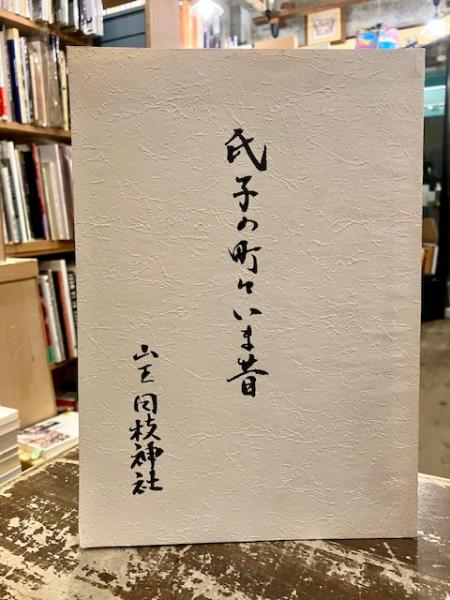 氏子の町々いま昔
山王 日枝神社